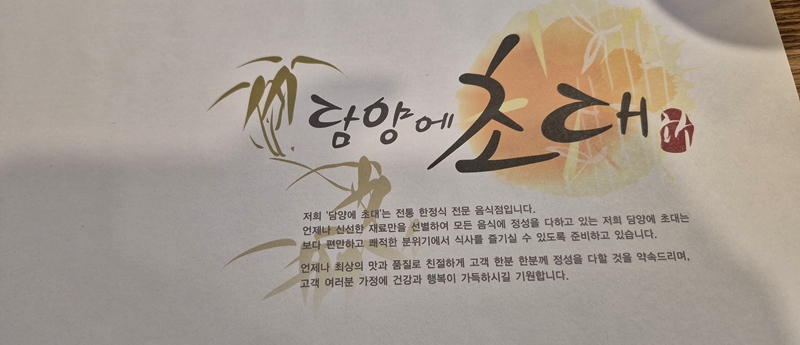 담양에 초대
저희 '담양에 초대'는 전통 한정식 전문 음식점입니다.
언제나 신선한 재료만을 선별하여 모든 음식에 정성을 다하고 있는 저희 담양에 초대는
보다 편안하고 쾌적한 분위기에서 식사를 즐기실 수 있도록 준비하고 있습니다.
언제나 최상의 맛과 품질로 친절하게 고객 한분 한분께 정성을 다할 것을 약속드리며,
고객 여러분 가정에 건강과 행복이 가득하시길 기원합니다.